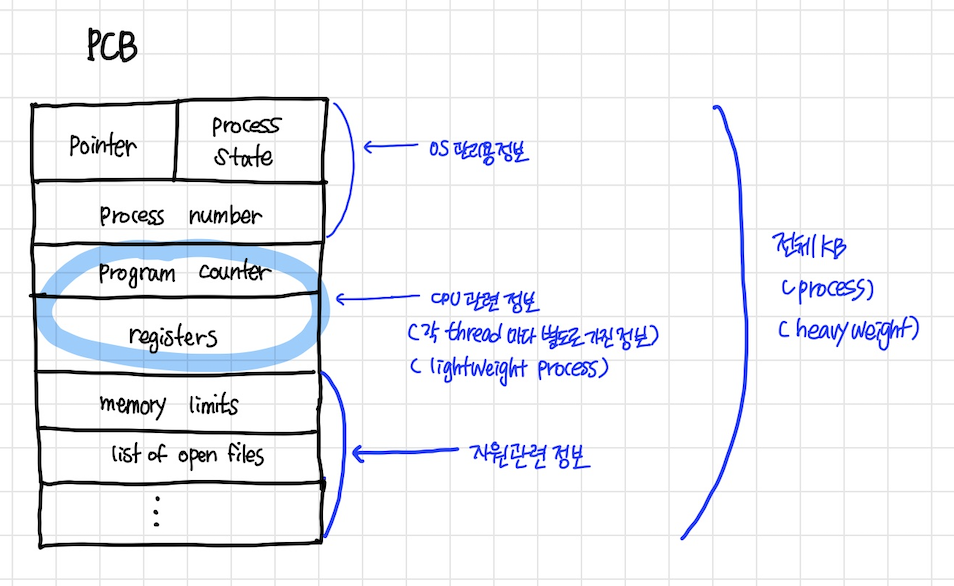 PCB
Pointer
process
state
process number
program counter
registers
memory limits
list of open files
OS 관리용 정보
CPU 관련 정보
(각 thread 마다 별도로 가진 정보)
(lightweight process)
자원 관련 정보
전체 KB
(process)
(heavy weight)